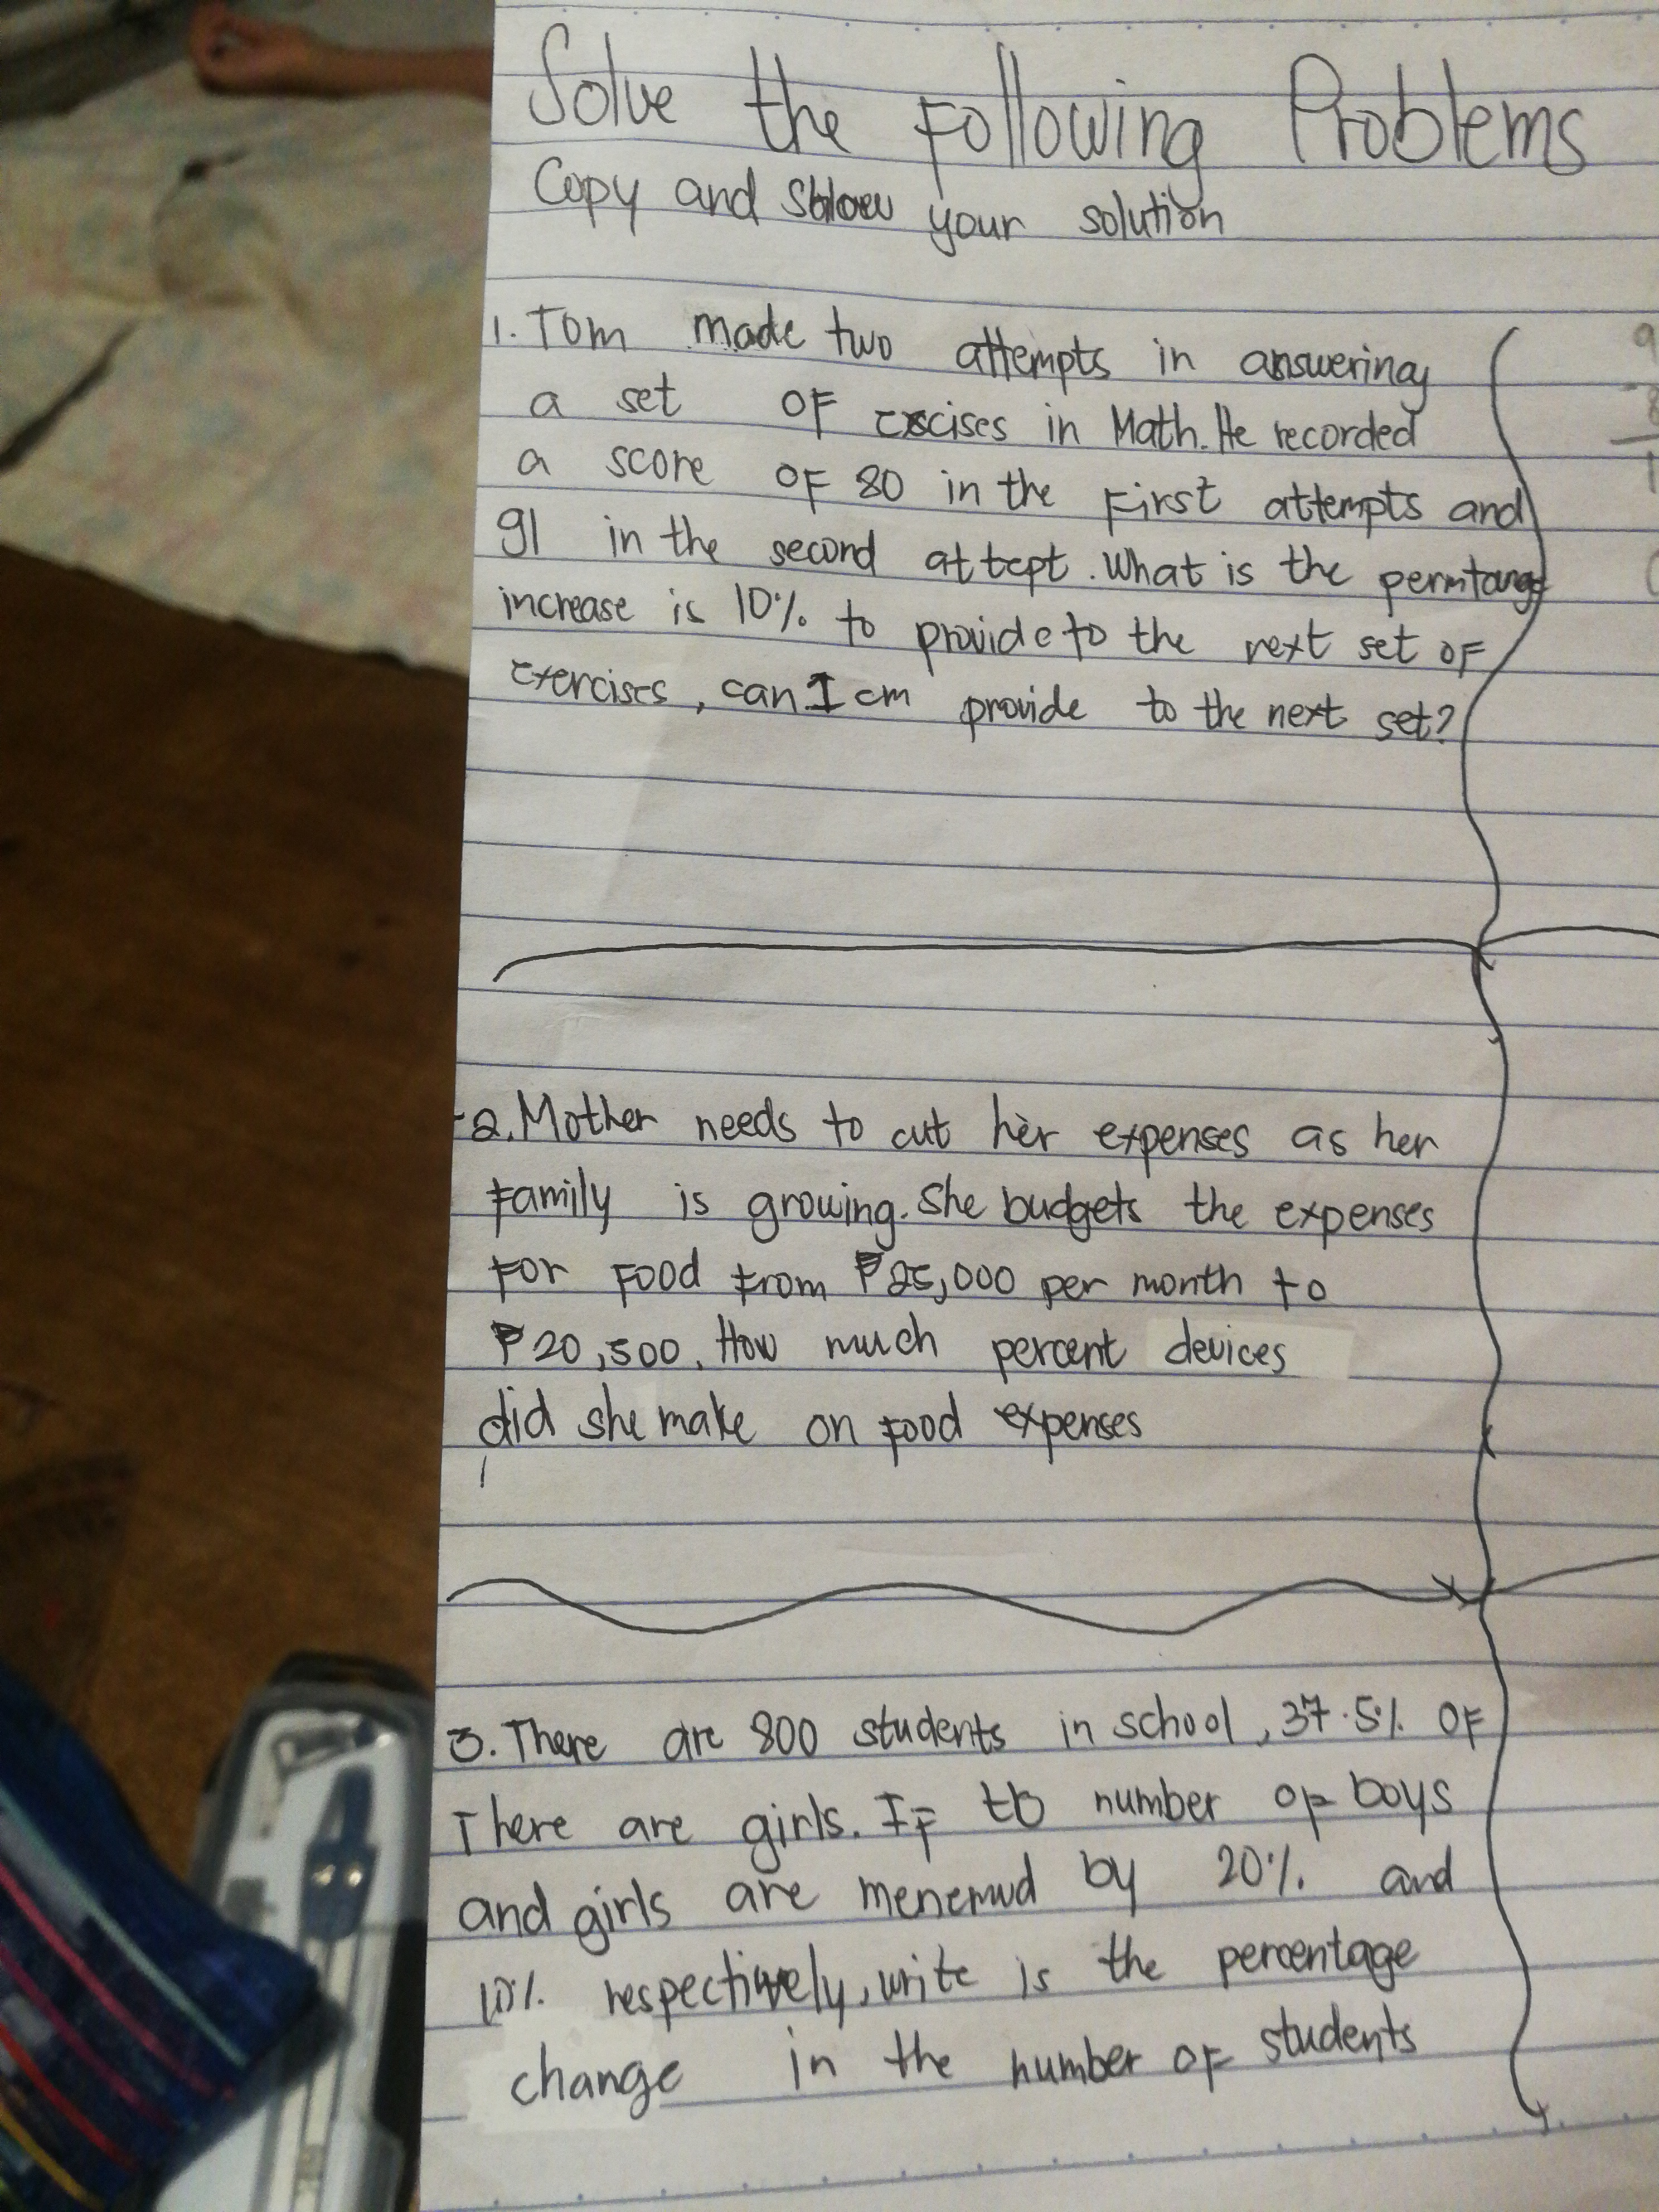 Solve the Following Problems
Copy and show your solution
1. Tom made two attempts in answering
a set of excises in Math. He recorded
a score of 80 in the First attempts and
91 in the second attept. What is the
increase is 10% to provide to the next set of
exercises, can I cm provide to the next set?
2. Mother needs to cut her expenses as her
family is growing. She budgets the expenses
for food from ₱25,000 per month to
₱20,500. How much percent devices
did she make on food expenses
3. There are 800 students in school, 37.5% of
There are girls. If number of boys
and girls are by 20% and
10% respectively, write is the percentage
change in the number of students